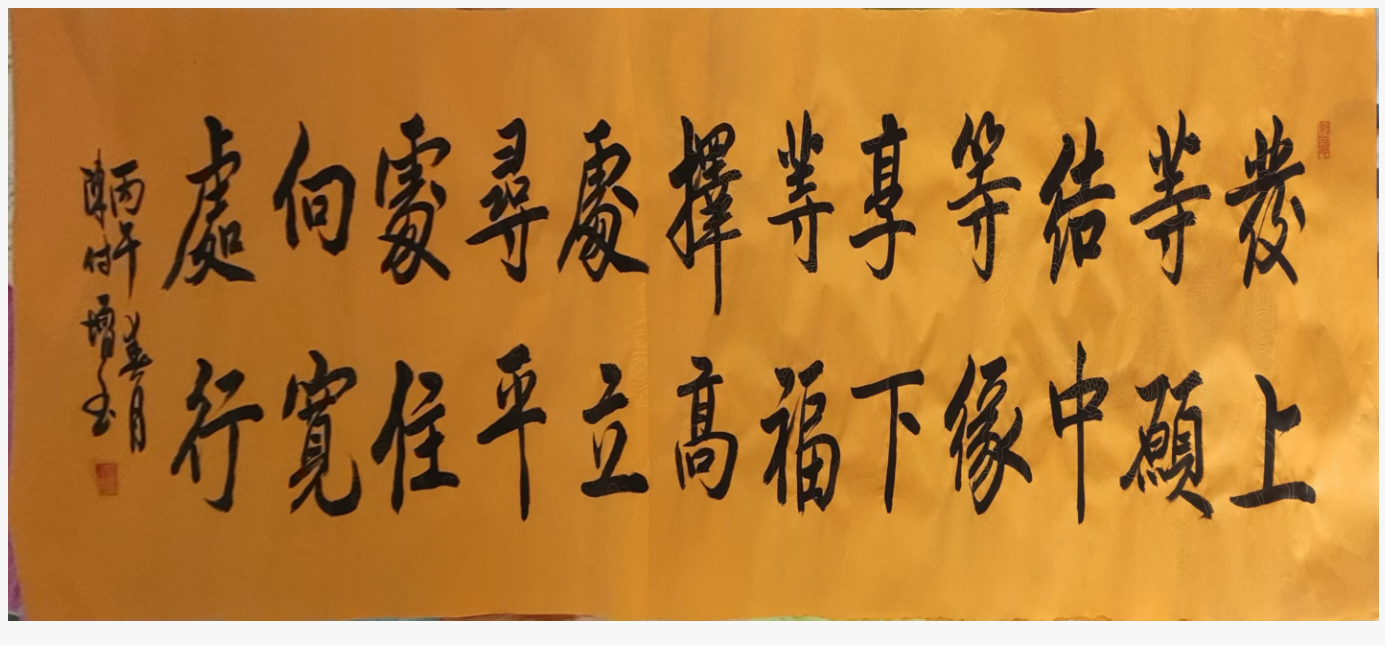 發上
等願
结中
等緣
享下
等福
擇高
處立
尋平
處住
向寬
處行
丙午月
陳付增玉